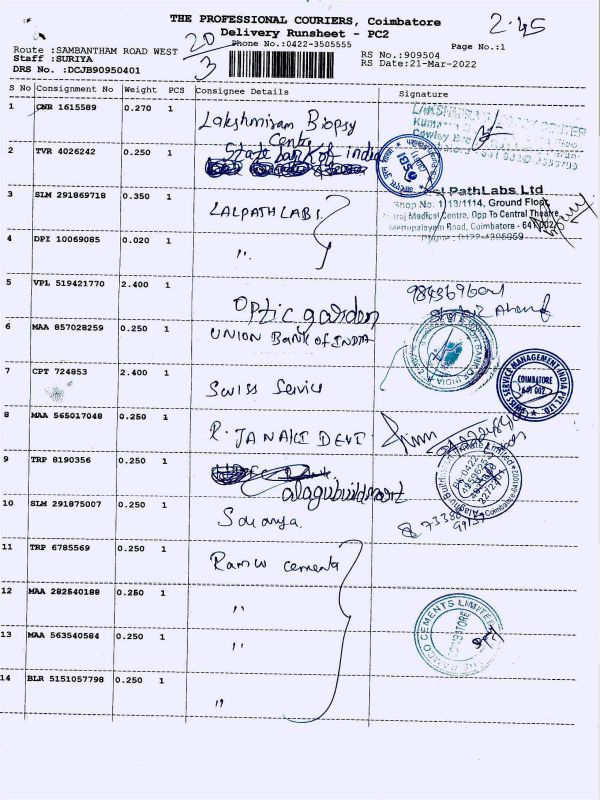 THE PROFESSIONAL COURIERS, Coimbatore
2.45
Delivery Runsheet - PC2
20/3
Phone No.:0422-3505555
Page No.:1
Route :SAMBANTHAM ROAD WEST
RS No.:909504
Staff :SURIYA
RS Date:21-Mar-2022
DRS No. :DCJB90950401
S No Consignment No Weight PCS Consignee Details Signature
1 CNR 1615589 0.270 1
Lakshmiram Biopsy
Centre
2 TVR 4026242 0.250 1
State bank of india
3 SLM 291869718 0.350 1
LALPATHLABS
PathLabs Ltd
Shop No: 1113/1114, Ground Floor
Medical Centre, Opp To Central Theatre
Mettupalayam Road, Coimbatore - 641 002
4 DPI 10069085 0.020 1
"
5 VPL 519421770 2.400 1
Optic garden
6 MAA 857028259 0.250 1
UNION Bank of INDIA
7 CPT 724853 2.400 1
Swiss Service
SWISS SERVICE MANAGEMENT INDIA PVT LTD.
COIMBATORE
641 002
8 MAA 565017048 0.250 1
R. JANAKI DEVI
9 TRP 8190356 0.250 1
alagubuildmart
10 SLM 291875007 0.250 1
Soranya.
11 TRP 6785569 0.250 1
Ramco cements
12 MAA 282540188 0.250 1
"
CEMENTS LIMITED
COIMBATORE
13 MAA 563540584 0.250 1
"
14 BLR 5151057798 0.250 1
"